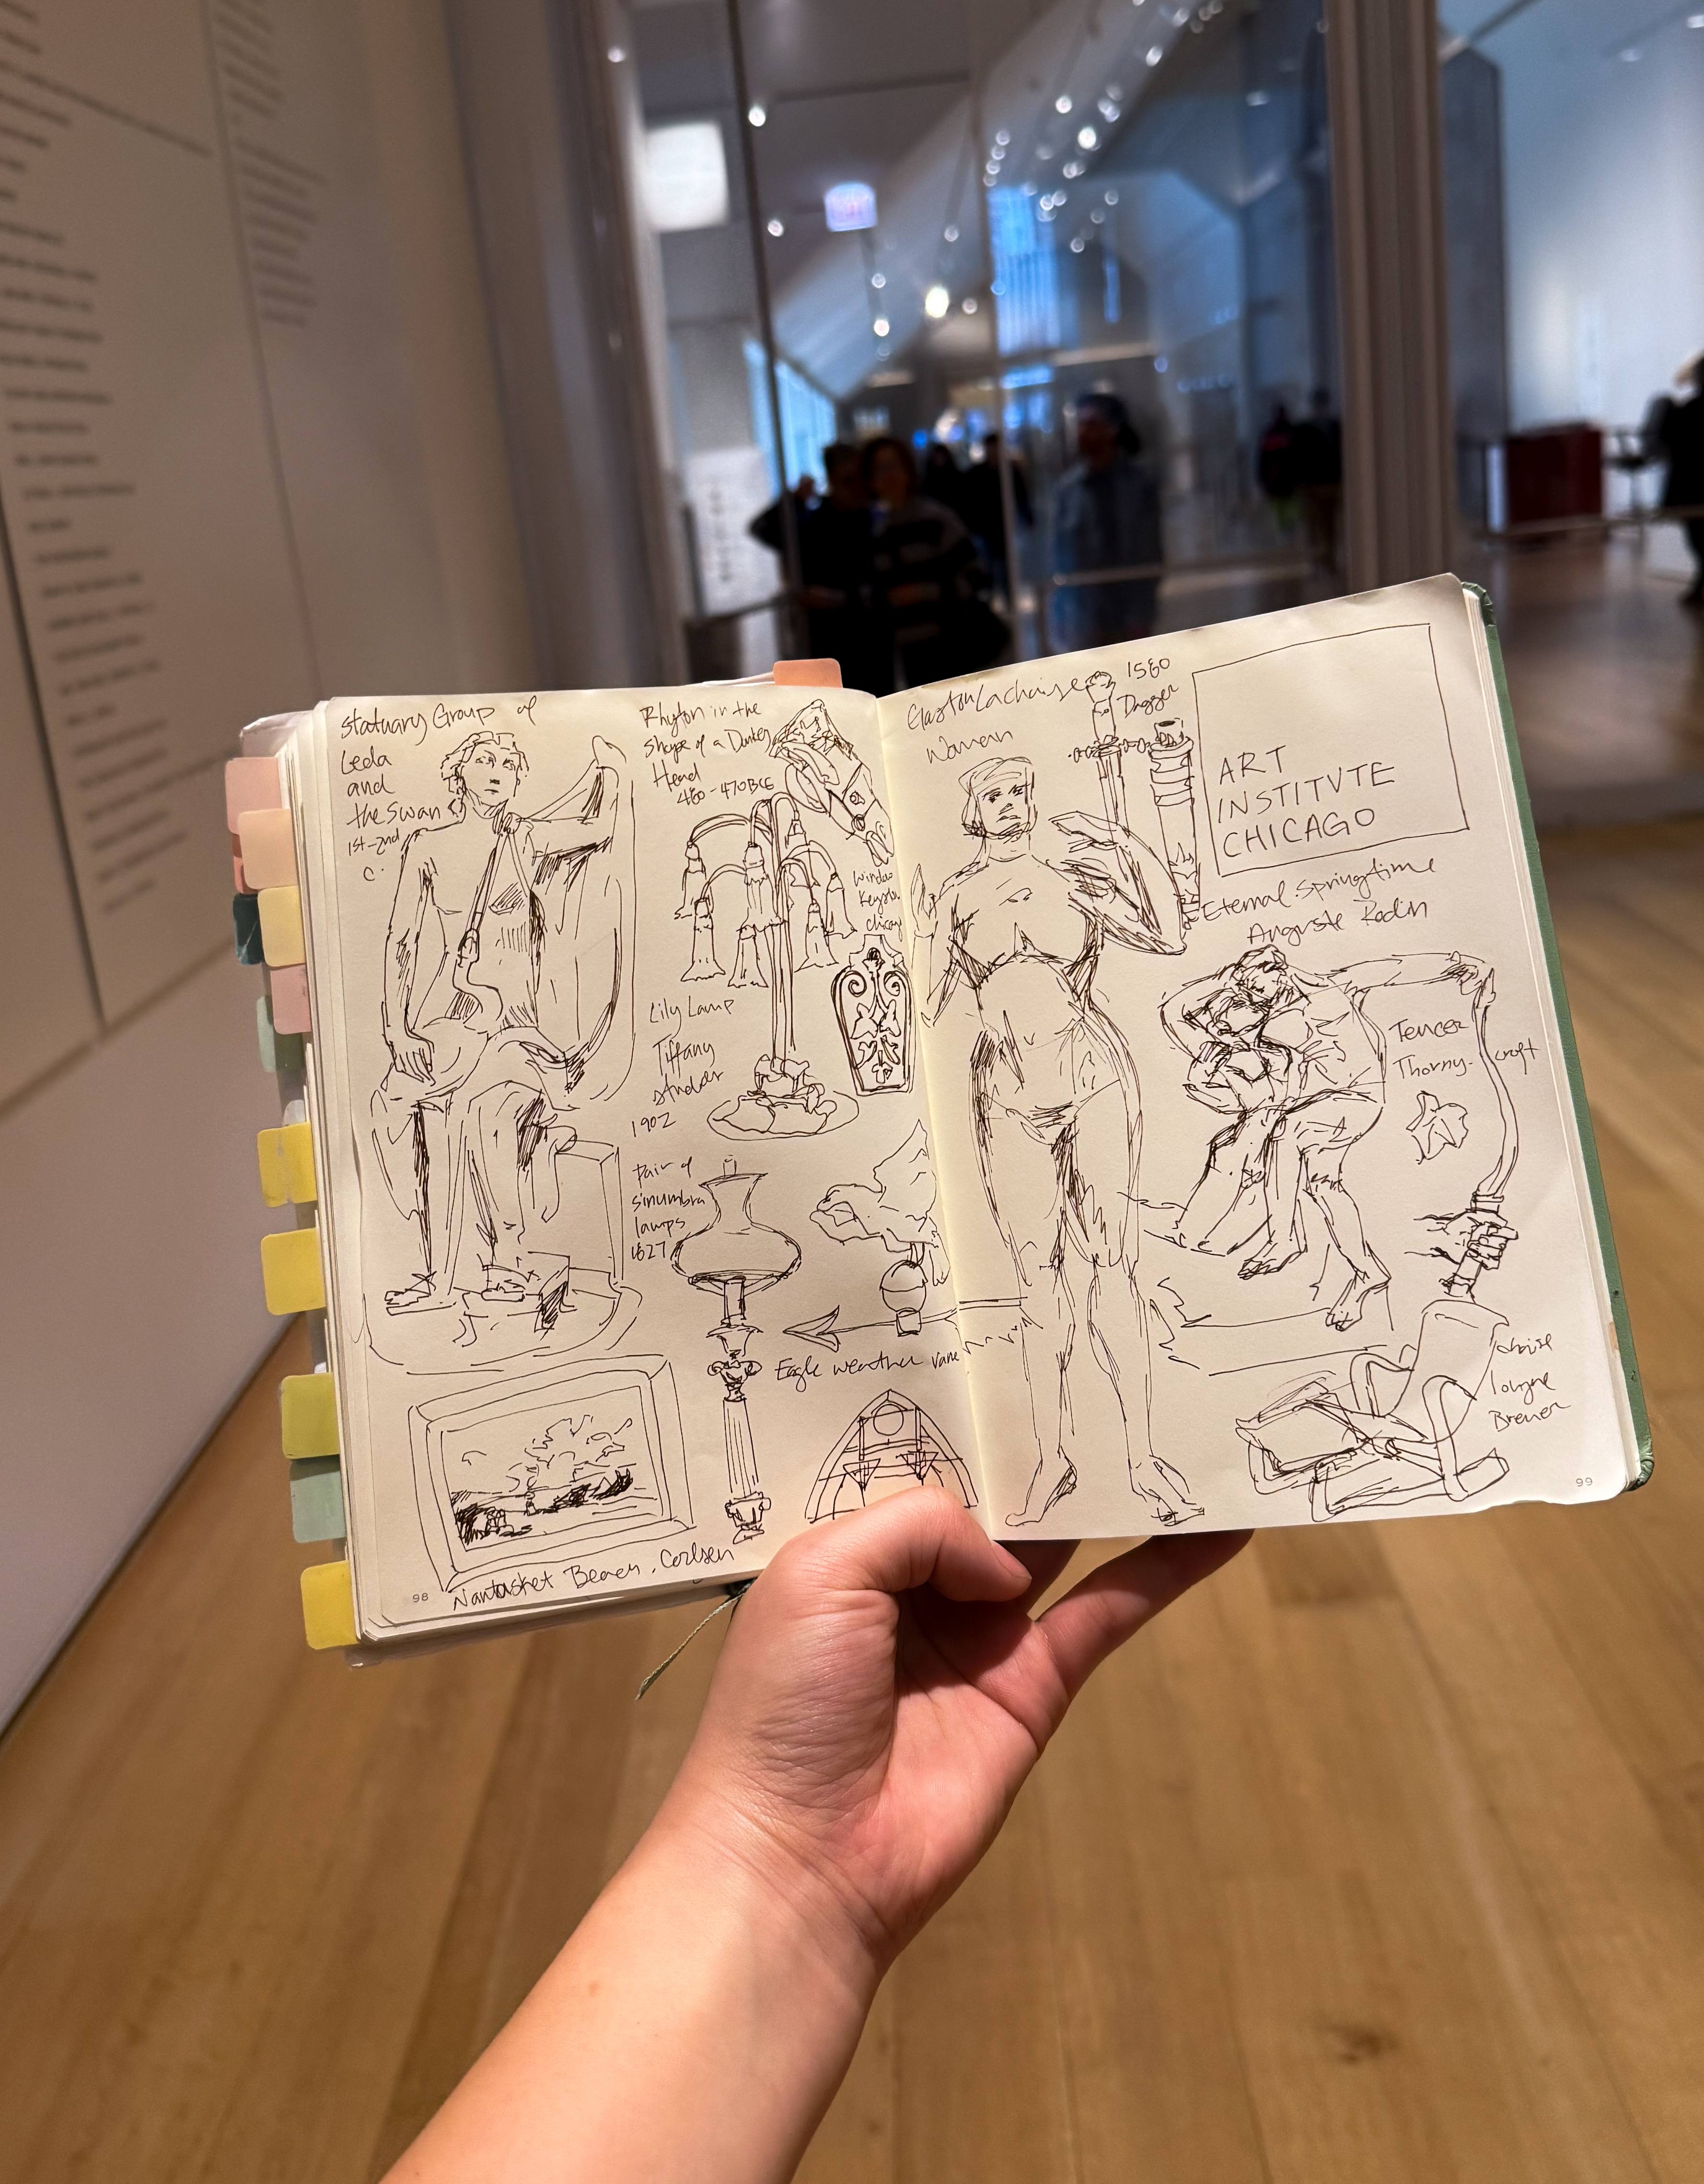 Statuary Group of
Leda
and
the Swan
1st-2nd
c.
Rhyton in the
Shape of a Donkey
Head
480-470BCE
Lily Lamp
Tiffany
Studios
1902
Window
Keystone
Chicago
Pair of
sinumbra
lamps
1827
Eagle weather vane
Nantasket Beach, Carlsen
98
Gaston Lachaise
Woman
1560
Dagger
ART
INSTITVTE
CHICAGO
Eternal Springtime
Auguste Rodin
Teucer
Thorny-croft
chaise
longue
Breuer
99